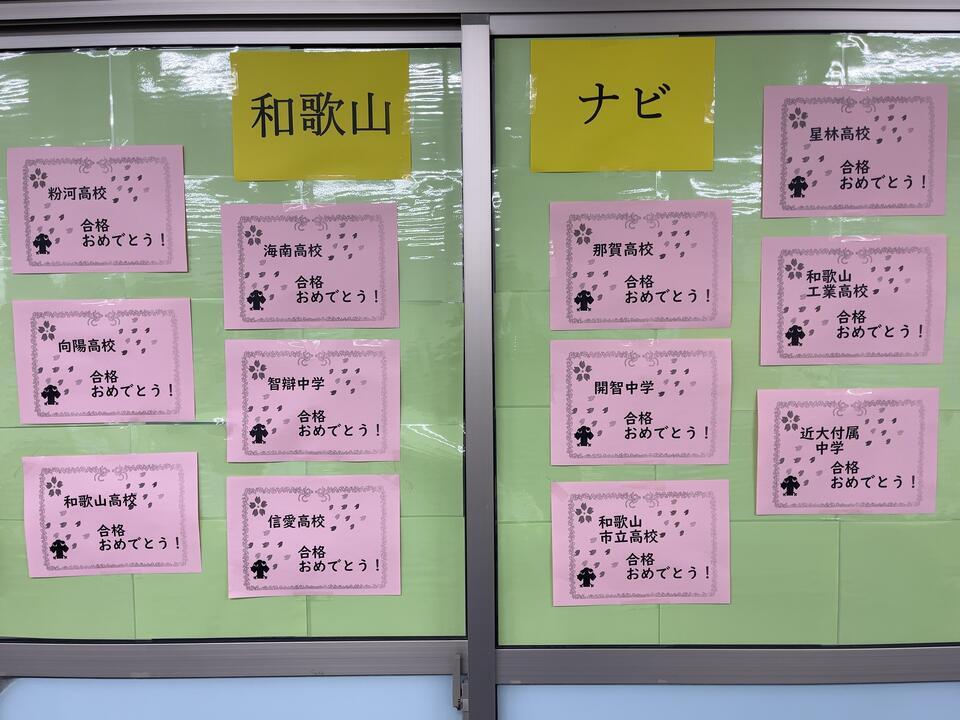 和歌山
ナビ
粉河高校
合格
おめでとう！
向陽高校
合格
おめでとう！
和歌山高校
合格
おめでとう！
海南高校
合格
おめでとう！
智辯中学
合格
おめでとう！
信愛高校
合格
おめでとう！
那賀高校
合格
おめでとう！
開智中学
合格
おめでとう！
和歌山
市立高校
合格
おめでとう！
星林高校
合格
おめでとう！
和歌山
工業高校
合格
おめでとう！
近大付属
中学
合格
おめでとう！